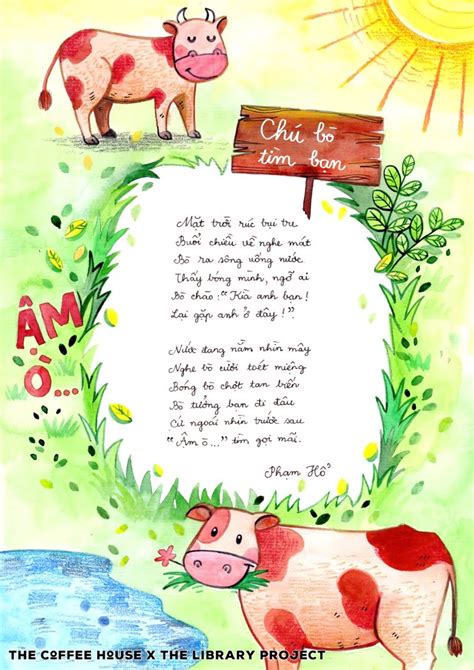 Chú bò
tìm bạn
Mặt trời rúc bụi tre
Buổi chiều về nghe mát
Bò ra sông uống nước
Thấy bóng mình, ngỡ ai
Bò chào: "Kìa anh bạn!
Lại gặp anh ở đây!"
Nước đang nằm nhìn mây
Nghe bò cười toét miệng
Bóng bò chợt tan biến
Bò tưởng bạn đi đâu
Cứ ngoái nhìn trước sau
"Ậm ò..." tìm gọi mãi.
Phạm Hổ
ẬM
Ò...
THE COFFEE HOUSE X THE LIBRARY PROJECT